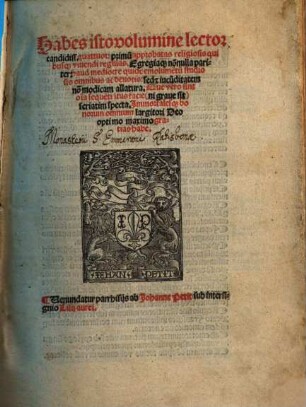 Habes isto volumine lector
candidiss. quattuor primū approbatas religiosis qui
busq; viuendi regulas. Egregia q; nōnulla pari
ter: haud mediocre quide emolumentū studio
sis omnibus
nō modicam allatura, scitu vero sint
oīa
seriatim specta, Immortaleq; bo
norum omnium largitori Deo
optimo maximo gra
tias habe.
Monasterij S. Emmerami Ratisbonæ
I P
IEHAN PETIT
Uenundatur parrhisijs ab Johanne Petit sub intersi
gnio Lilij aurei.